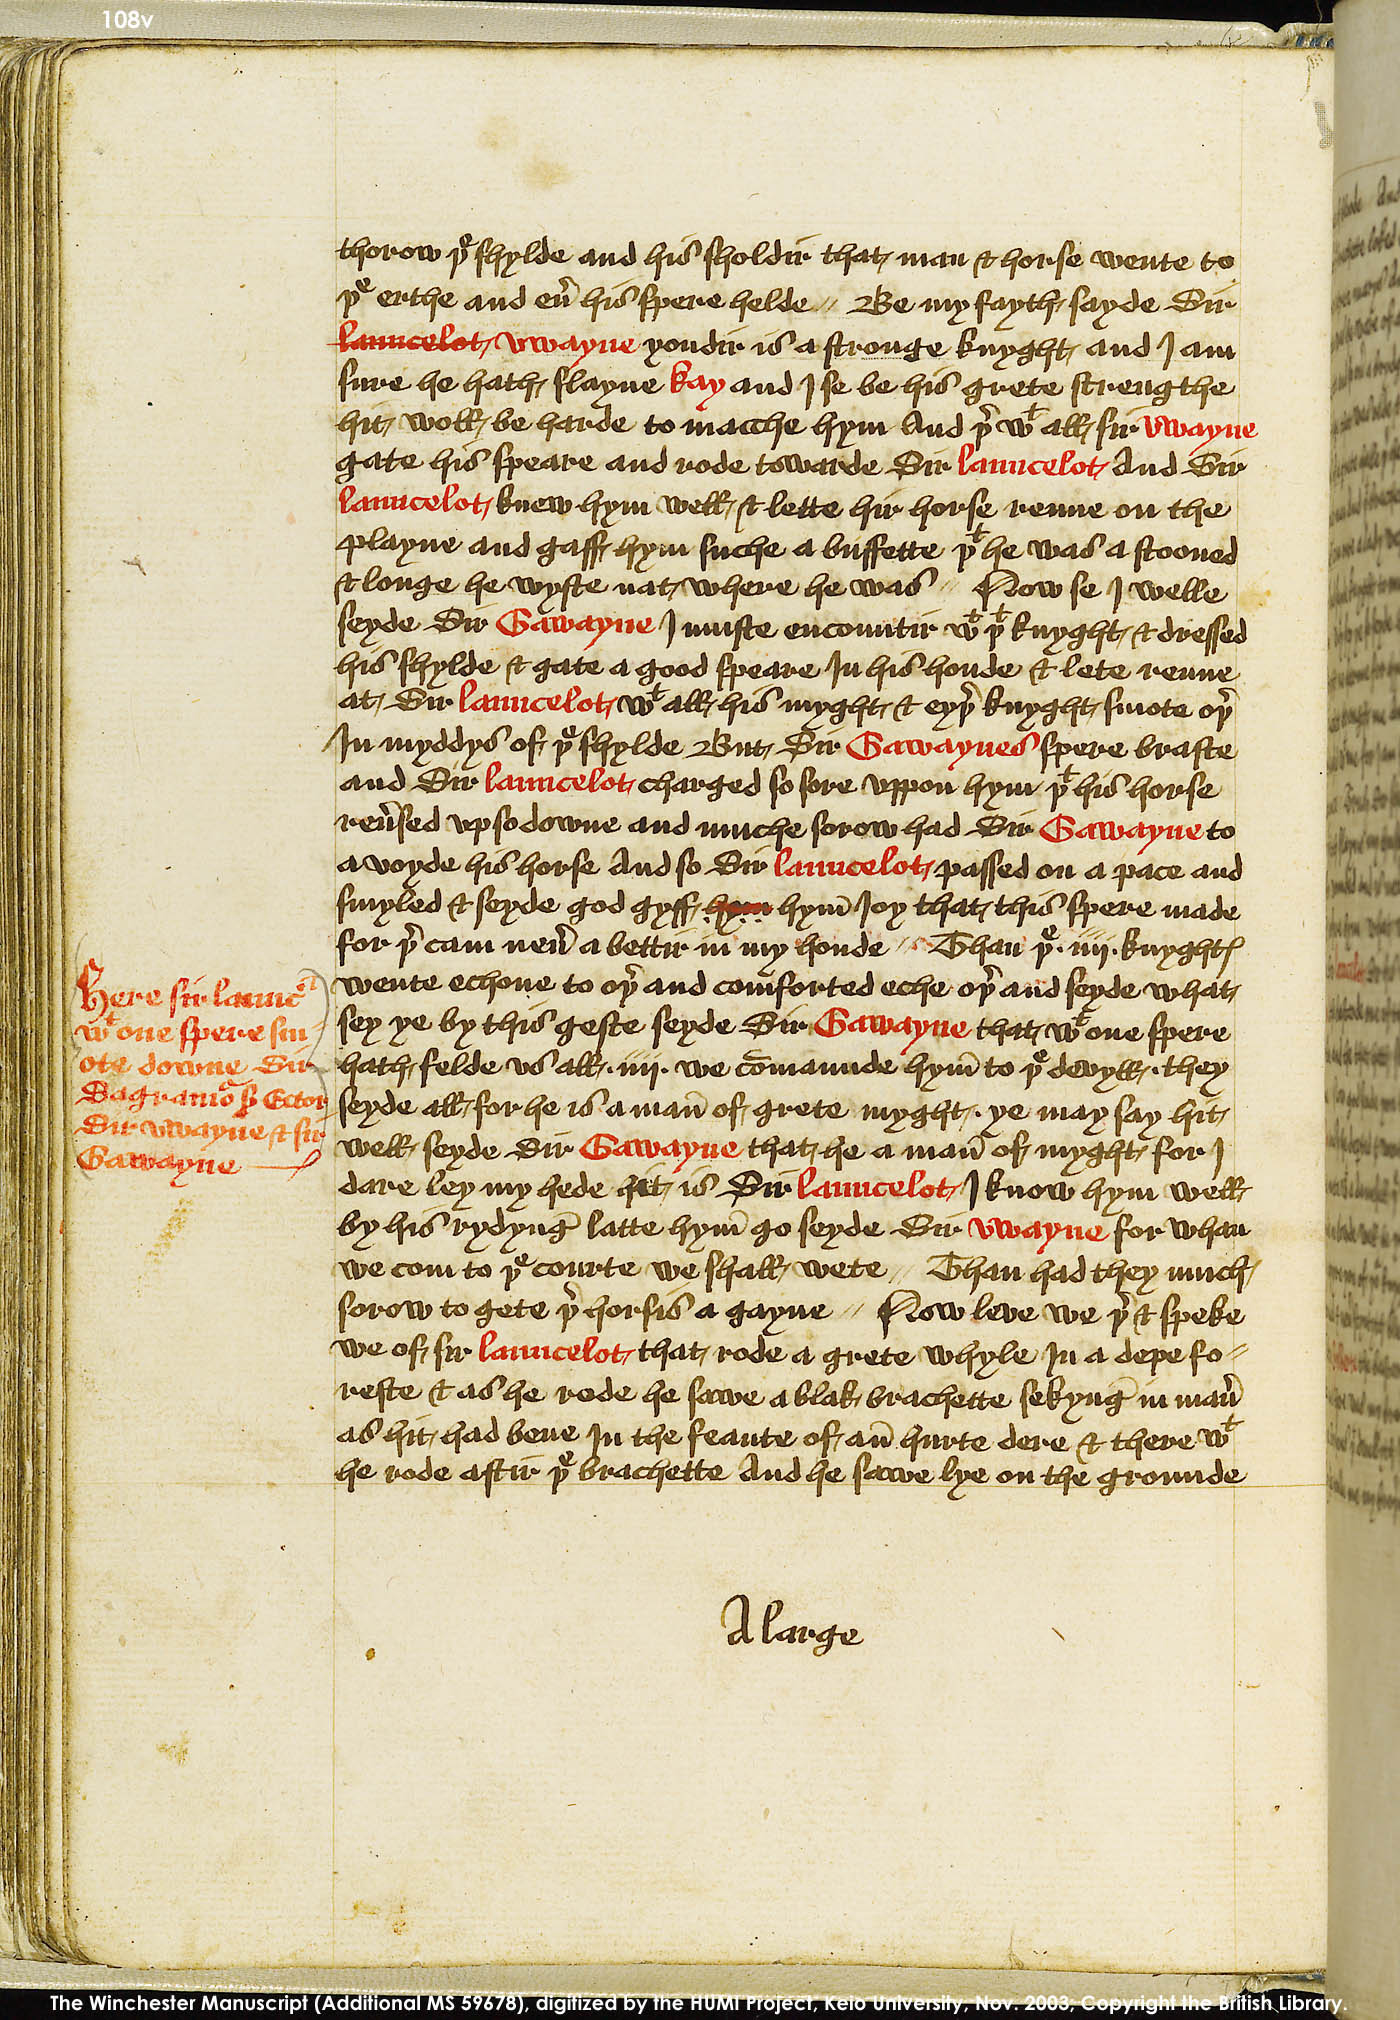 108v
thorow þͤ shylde and his sholdir that man & horse wente to
þͤ erthe and eu̾ his spere helde // Be my fayth sayde Sir
launcelot vwayne yondir is a stronge knyght and I am
sure he hath slayne kay and I se be his grete strengthe
hit woll be harde to macche hym And þ̾ wͭ all sir vwayne
gate his speare and rode towarde Sir launcelot And Sir
launcelot knew hym well & lette hir horse renne on the
playne and gaff hym suche a buffette þͭ he was a stooned
& longe he wyste nat where he was // Now se I welle
seyde Sir Gawayne I muste encountir wͭ þͭ knyght & dressed
his shylde & gate a good speare In his honde & lete renne
at Sir launcelot wͭ all his myght & eyþ̾ knyght smote oþ̾
In myddys of þͤ shylde But Sir Gawaynes spere braste
and Sir launcelot charged so sore vppon hym þͭ his horse
reu̾sed vpsodowne and muche sorow had Sir Gawayne to
a voyde his horse And so Sir launcelot passed on a pace and
smyled & seyde god gyff hym hym̄ Joy that this spere made
for þ̾ cam neu̾ a bettir in my honde // Than þͤ .iiij. knyghtꝭ
wente echone to oþ̾ and com̄forted eche oþ̾ and seyde what
sey ye by this geste seyde Sir Gawayne that wͭ one spere
hath felde vs all .iiij. we com̄aunde hym̄ to þͤ devyll . they
seyde all for he is a man̄ of grete myght . ye may say hit
well seyde Sir Gawayne that he a man̄ of myght for I
dare ley my hede hit is Sir launcelot I know hym well
by his rydynḡ latte hym̄ go seyde Sir vwayne for whan
we com to þͤ courte we shall wete // Than had they much
sorow to gete þ̾ horsis a gayne // Now leve we þ̾ & speke
we of sir launcelot that rode a grete whyle In a depe fo-
reste & as he rode he sawe a blak brachette sekynḡ in man̾
as hit had bene In the feaute of an̄ hurte dere & there wͭ
he rode aftir þͤ brachette And he sawe lye on the grounde
Here sir launcͭ
wͭ one spere sm-
ote downe Sir
Sagramoͬ Sͬ Ector
Sir vwayne & sir
Gawayne
A large
The Winchester Manuscript (Additional MS 59678), digitized by the HUMI Project, Keio University, Nov. 2003; Copyright the British Library.